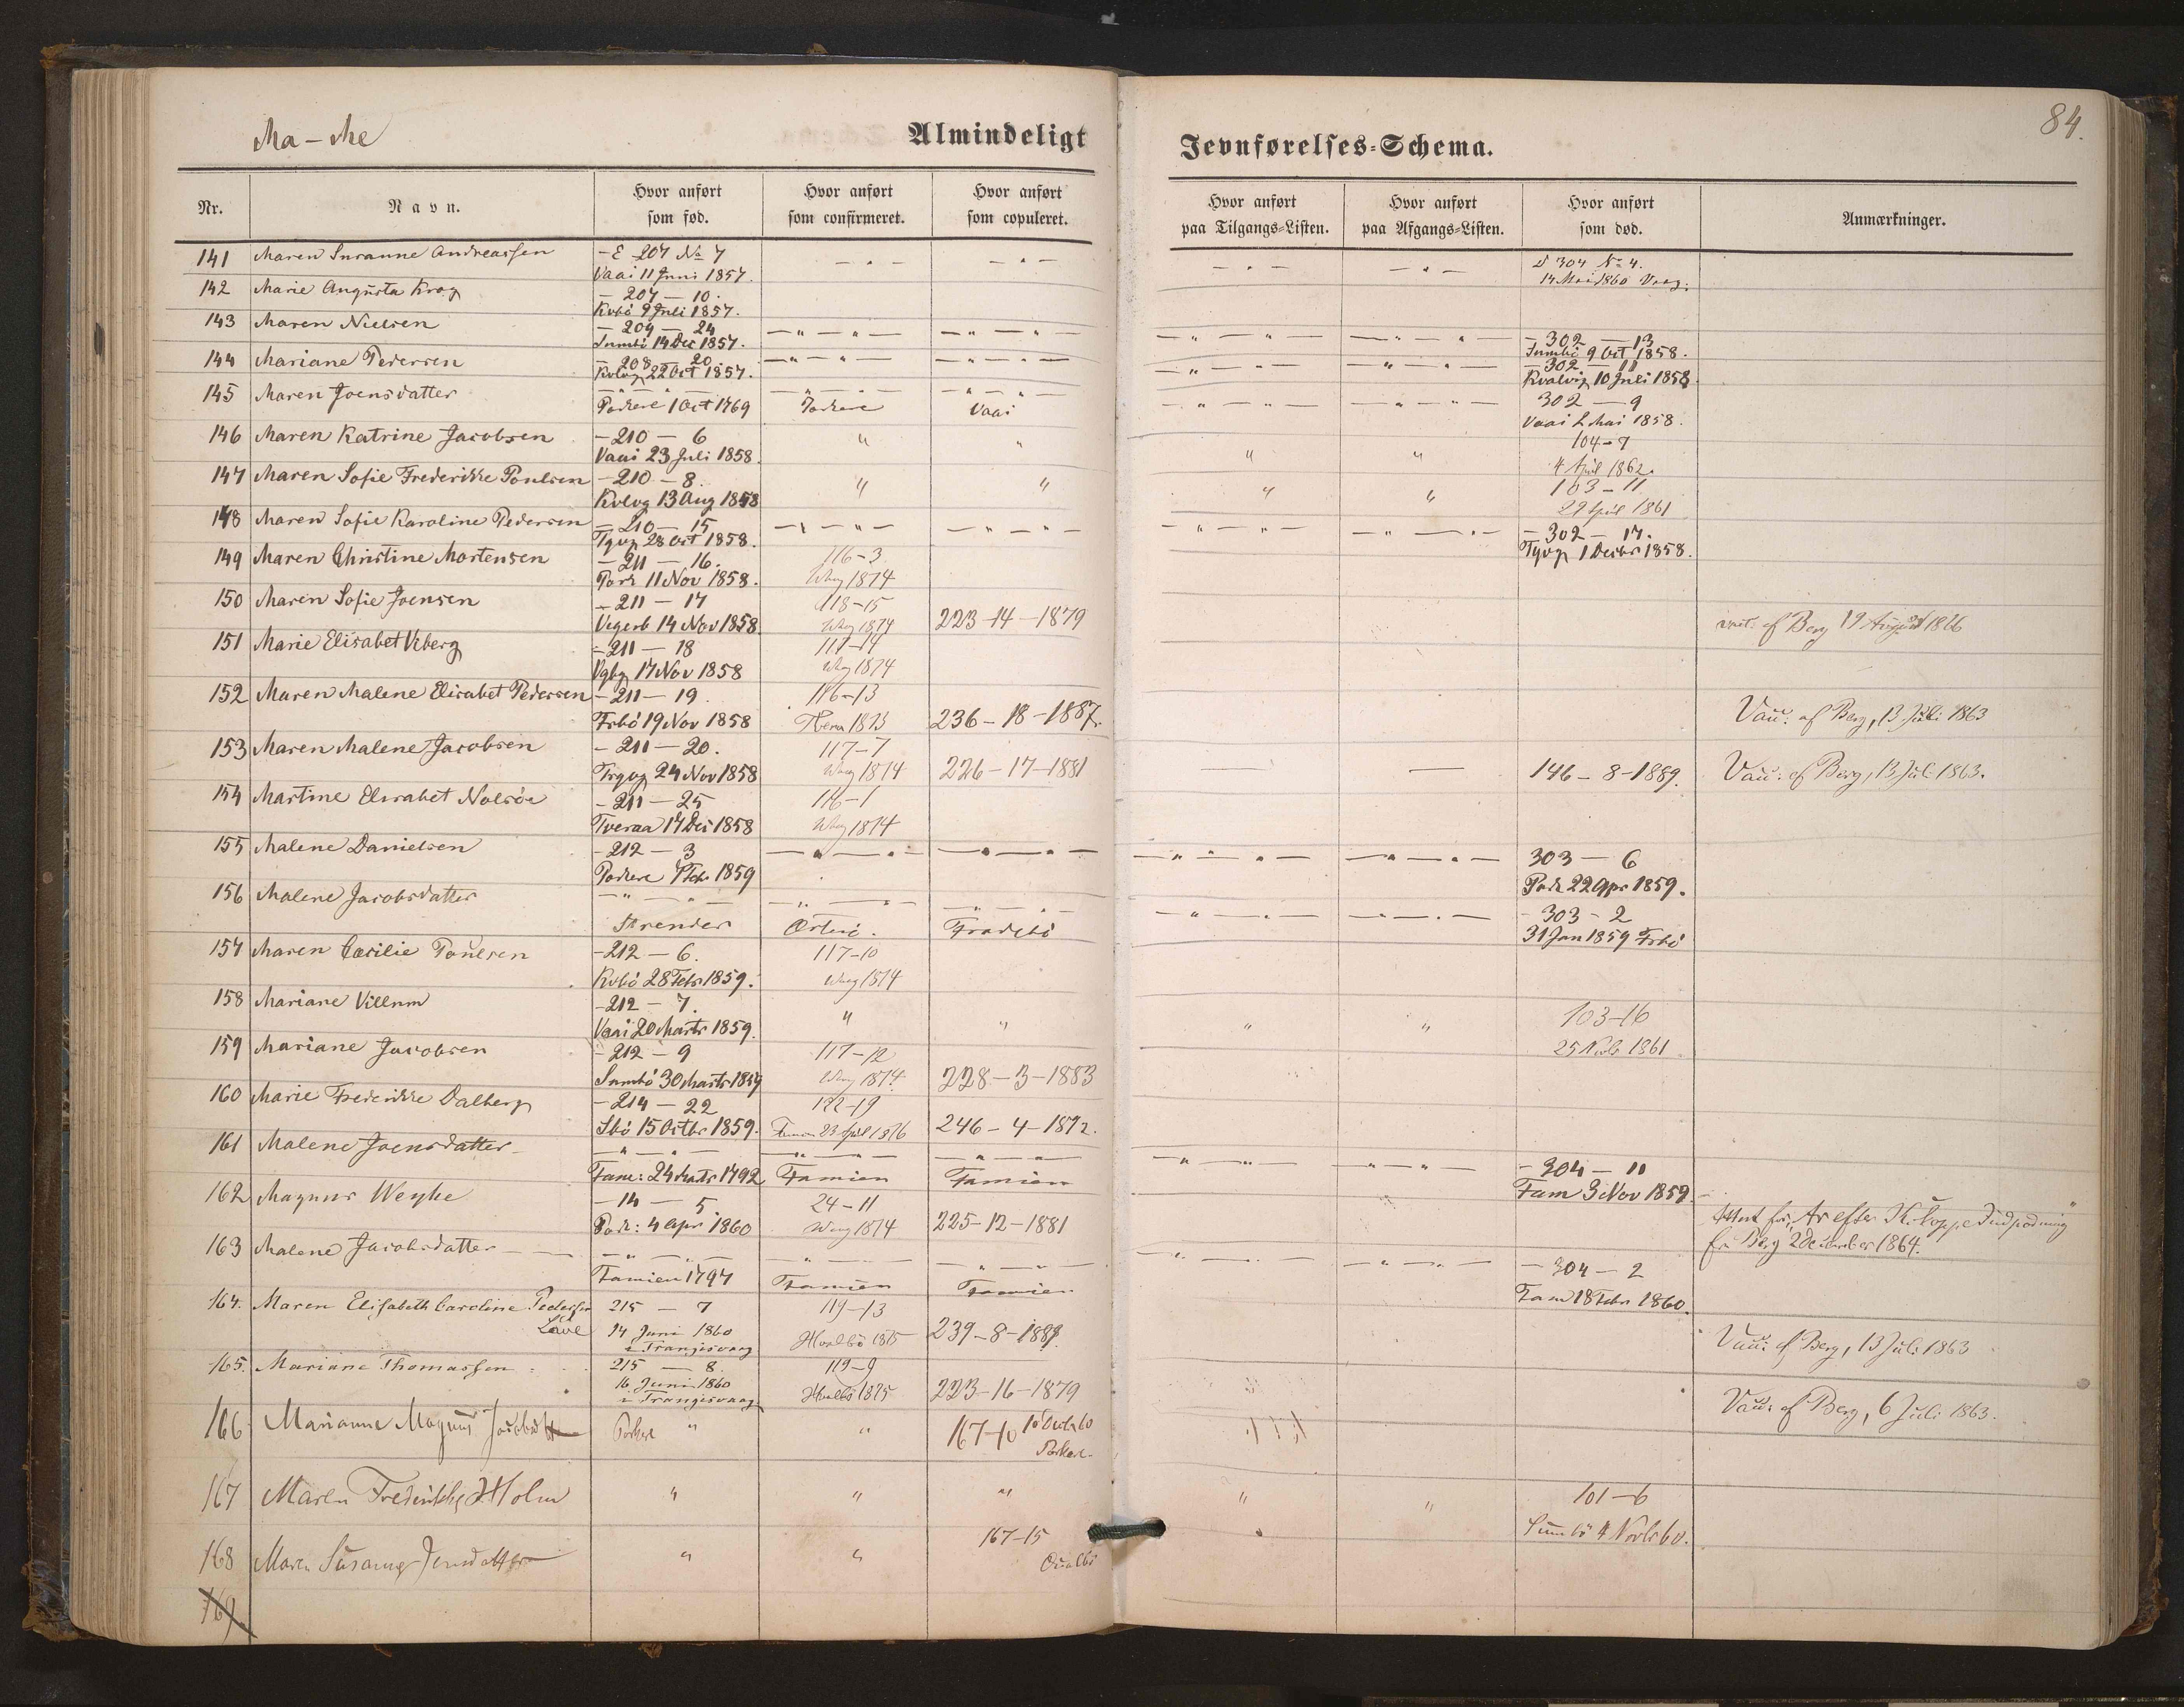 Ma-Me
Almindeligt
Jevnførelses-Schema.
84.
Nr.
Navn.
Hvor anført som fød.
Hvor anført som confirmeret.
Hvor anført som copuleret.
Hvor anført paa Tilgangs-Listen.
Hvor anført paa Afgangs-Listen.
Hvor anført som død.
Anmærkninger.
141 Maren Susanne Andreassen - E 207 No 7 — " — — " — — " — — " — 304 No 4.
Vaai 11 Juni 1857. 14 Mai 1860 Vaag.
142 Marie Augusta Krog — 207 — 10.
Kvbö 9 Juli 1857.
143 Maren Nielsen — 209 — 24 — 302 — 13
Sumbö 14 Dec 1857. Sumbö 9 Oct 1858.
144 Mariane Pedersen — 208 — 20. — 302 — 11
22 Oct 1857. Kvalvig 10 Juli 1858
145 Maren Joensdatter 302 — 9
Porkere 1 Oct 1769 Porkere Vaai Vaai 2 Mai 1858.
146 Maren Katrine Jacobsen — 210 — 6 " " " " 104-7
Vaai 23 Juli 1858. 4 April 1862.
147 Maren Sofie Frederikke Poulsen — 210 — 8. " " " " 103-11
13 Aug 1858 29 April 1861
148 Maren Sofie Karoline Pedersen — 210 — 15 — 302 — 17.
Tgvg 28 Oct 1858. Tgvg 1 Decbr 1858.
149 Maren Christine Mortensen — 211 — 16. 116-3
Pork 11 Nov 1858. Waag 1874
150 Maren Sofie Joensen — 211 — 17 118-15
Vegerb 14 Nov 1858. Waag 1874 223-14-1879 af Berg 19 August 1866
151 Marie Elisabet Viberg — 211 — 18 117-14
17 Nov 1858 Waag 1874
152 Maren Malene Elisabet Pedersen — 211 — 19. 116-13
Frbö 19 Nov 1858 1873 236-18-1887. Vacc. af Berg, 13 Juli 1863
153 Maren Malene Jacobsen — 211 — 20. 117-7
Trgvg 24 Nov 1858 Waag 1874 226-17-1881 146-8-1889. Vacc. af Berg, 13 Juli 1863.
154 Martine Elisabet Nolsöe — 211 — 25 116-1
Tveraa 17 Dec 1858 Waag 1874
155 Malene Danielsen — 212 — 3 303 — 6
Porkere 7 Febr 1859 Pork 22 Apr 1859.
156 Malene Jacobsdatter — 303 - 2
Strender Österö. Frodebö 31 Jan 1859 Frbö
157 Maren Cæcilie Poulsen — 212 — 6. 117-10
Kvbö 28 Febr 1859. Waag 1874
158 Mariane Villum — 212 — 7. " " " " 103-16
Vaai 20 Marts 1859. 25 Novbr 1861
159 Mariane Jacobsen — 212 — 9 117-12
Sumbö 30 Marts 1859 Waag 1874 228-3-1883
160 Marie Frederikke Dalberg — 214 — 22 122-19
Sbö 15 Octbr 1859. Famien 23 April 1876 246-4-1892.
161 Malene Joensdatter — 304 — 11
Fame: 24 Marts 1792 Famien Famien Fam 3 Nov 1859.
162 Magnus Weyhe — 14 — 5. 24-11
Pork: 4 Apr 1860 Waag 1874 225-12-1881 Attest for Ar efter Indpodning
163 Malene Jacobsdatter — 304 — 2 fra Berg 2 December 1864.
Famien 1797 Famien Famien Fam 18 Febr 1860.
164. Maren Elisabeth Caroline Pedersen 215 — 7 119-13
14 Juni 1860 Hvalbö 1875 239-8-1889. Vacc: af Berg, 13 Juli 1863
i Trangisvaag
165. Mariane Thomassen 215 — 8. 119-9
16 Juni 1860 Hvalbö 1875 223-16-1879 Vacc: af Berg, 6 Juli 1863.
i Trangisvaag
166 Marianne Magnus Porkere " " 167-10
Porkere
167 Maren Frederikke Holm " " " " " 101-6
Sumbö 4 Novbr 60.
168 Maren Susanne " " 167-15
Qualbö
169